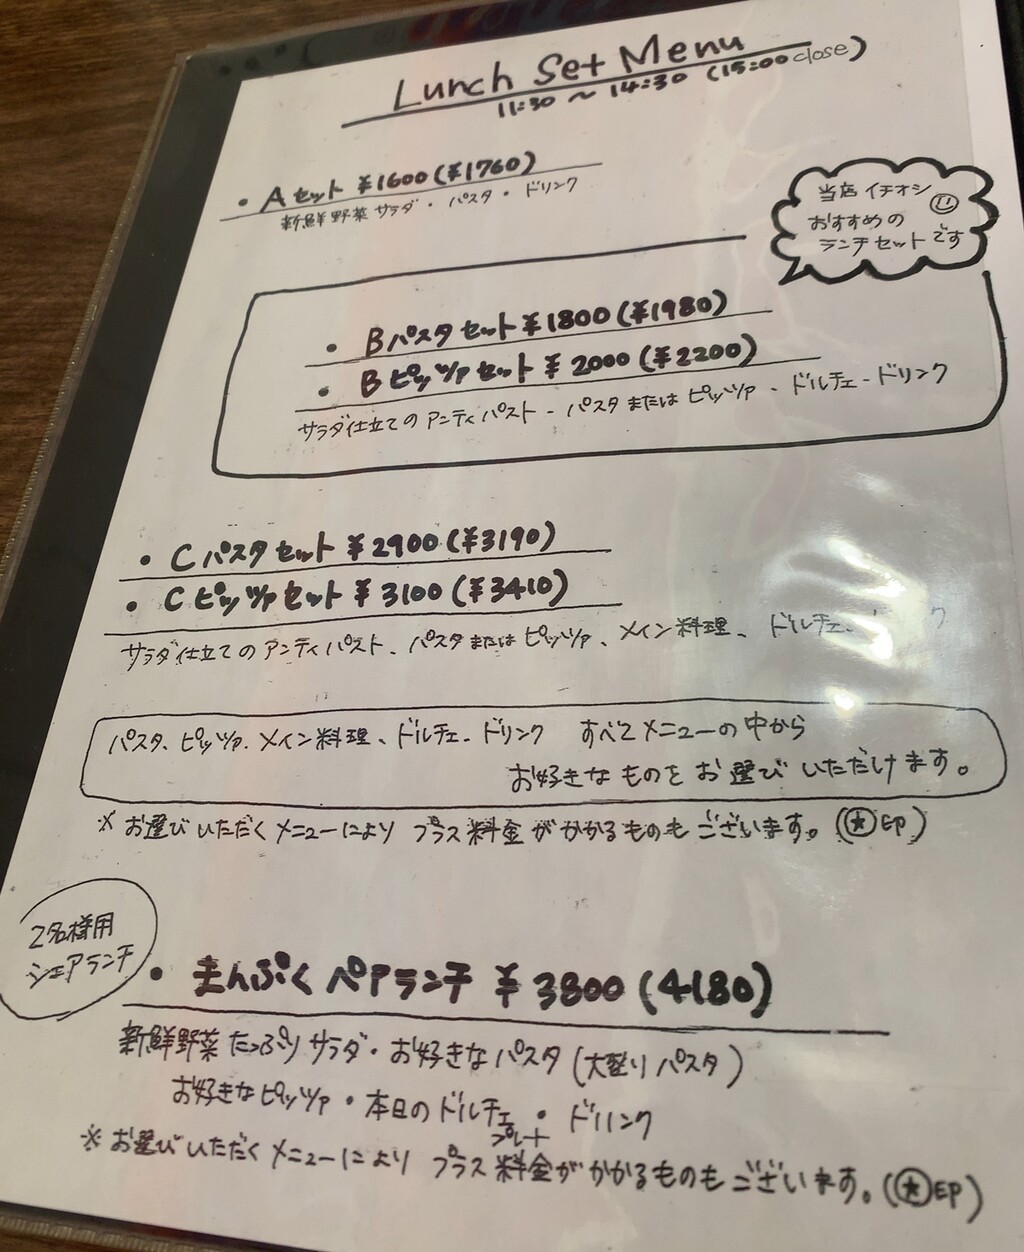 Lunch Set Menu
11:30 ～ 14:30 (15:00 close)
・Aセット ¥1600 (¥1760)
新鮮野菜サラダ・パスタ・ドリンク
当店イチオシ
おすすめの
ランチセットです
・Bパスタセット ¥1800 (¥1980)
・Bピッツァセット ¥2000 (¥2200)
サラダ仕立てのアンティパスト - パスタまたはピッツァ - ドルチェ - ドリンク
・Cパスタセット ¥2900 (¥3190)
・Cピッツァセット ¥3100 (¥3410)
サラダ仕立てのアンティパスト、パスタまたはピッツァ、メイン料理、ドルチェ、
パスタ、ピッツァ、メイン料理、ドルチェ、ドリンク すべてメニューの中から
お好きなものをお選びいただけます。
※お選びいただくメニューによりプラス料金がかかるものもございます。(★印)
2名様用
シェアランチ
・まんぷくペアランチ ¥3800 (4180)
新鮮野菜たっぷりサラダ・お好きなパスタ (大盛りパスタ)
お好きなピッツァ・本日のドルチェ・ドリンク
プレート
※お選びいただくメニューによりプラス料金がかかるものもございます。(★印)